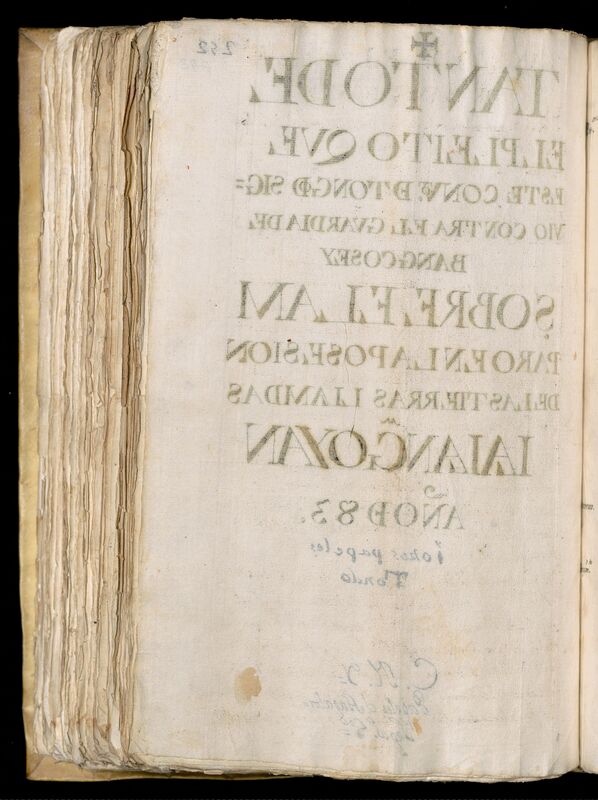 292
✠
TANTO DE
EL PLEITO QVE
ESTE CONV.ᵗᵒ D TONGDO SIG=
VIO CONTRA EL GVARDIA DE
BANGCOSEY
SOBRE EL AM
PARO EN LA POSESION
DE LAS TIERRAS LLAMDAS
LALANGOYAN
AÑO D 83.
papeles
Tondo